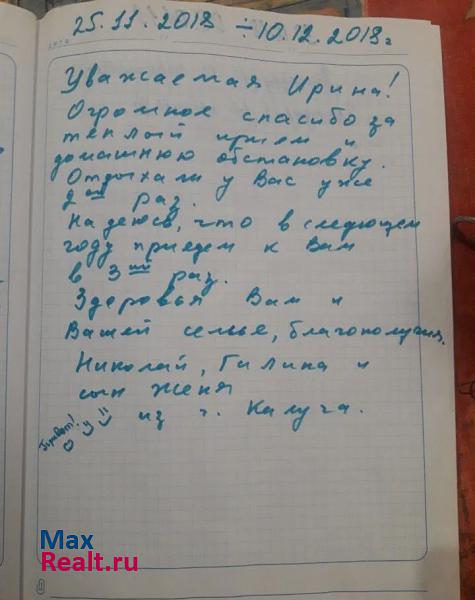 25.11.2018 ÷ 10.12.2018г
Уважаемая Ирина!
Огромное спасибо за
тёплый прием и
домашнюю обстановку.
Отдыхали у Вас уже
2ой раз.
Надеюсь, что в следующем
году приедем к Вам
в 3ий раз.
Здоровья Вам и
Вашей семье, благополучия.
Николай, Галина и
сын Женя
из г. Калуга.
Привет!
Max
Realt.ru